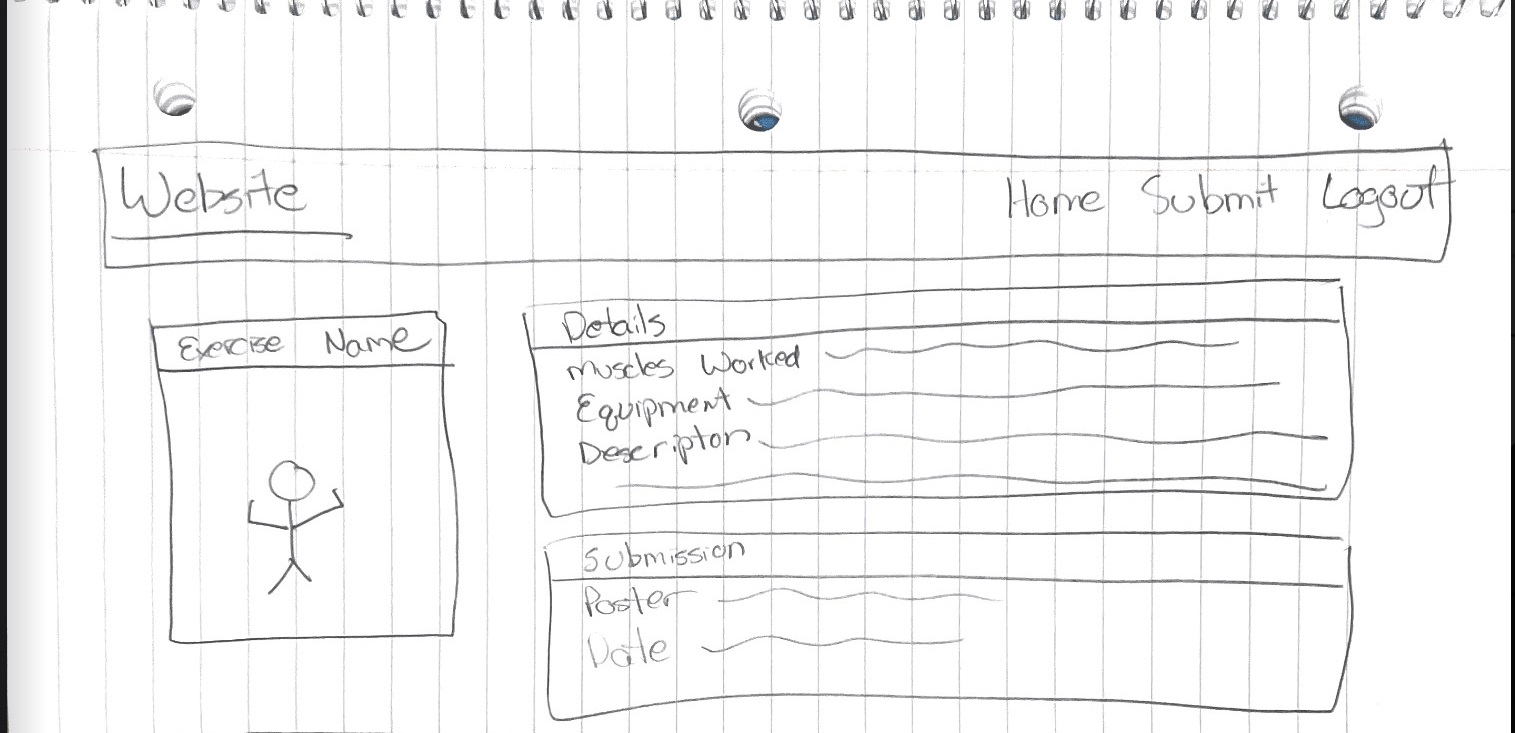 Website
Home Submit Logout
Exercise Name
Details
Muscles Worked
Equipment
Description
Submission
Poster
Date